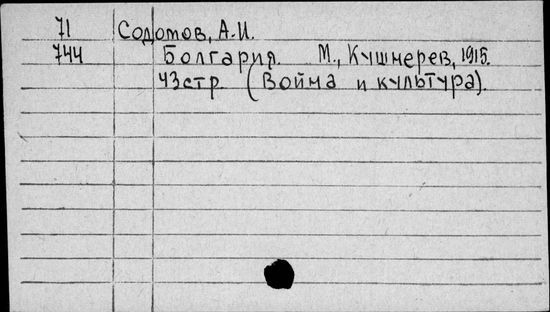 71 Содомов, А.И.
744 Болгария. М., Кушнерев, 1915.
43 стр. (Война и культура).